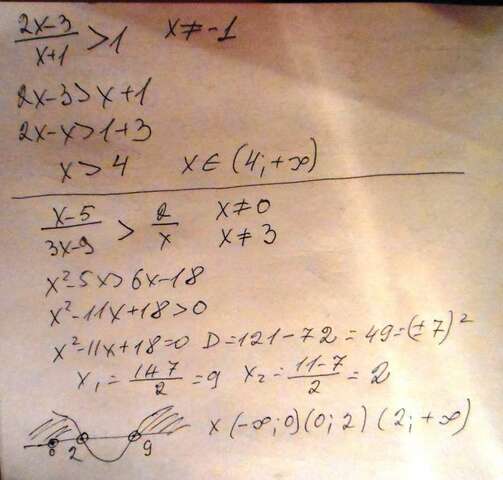 2x-3/x+1 > 1 x ≠ -1
2x-3 > x+1
2x-x > 1+3
x > 4 x ∈ (4; +∞)
x-5/3x-9 > 2/x x ≠ 0
x ≠ 3
x²-5x > 6x-18
x²-11x+18 > 0
x²-11x+18=0 D=121-72=49=(±7)²
x₁ = 1+7/2 = 9 x₂ = 11-7/2 = 2
0 2 9 x (-∞; 0) (0; 2) (2; +∞)